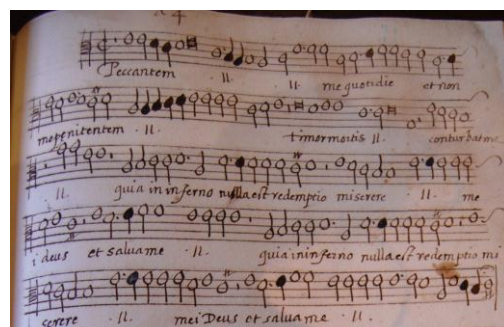 Peccantem .ll. .ll. me quotidie et non
me penitentem .ll. timor mortis .ll. conturbat me
.ll. quia in inferno nulla est redemptio miserere .ll. me
i deus et salva me .ll. quia in inferno nulla est redemptio mi
serere .ll. mei Deus et salva me .ll.